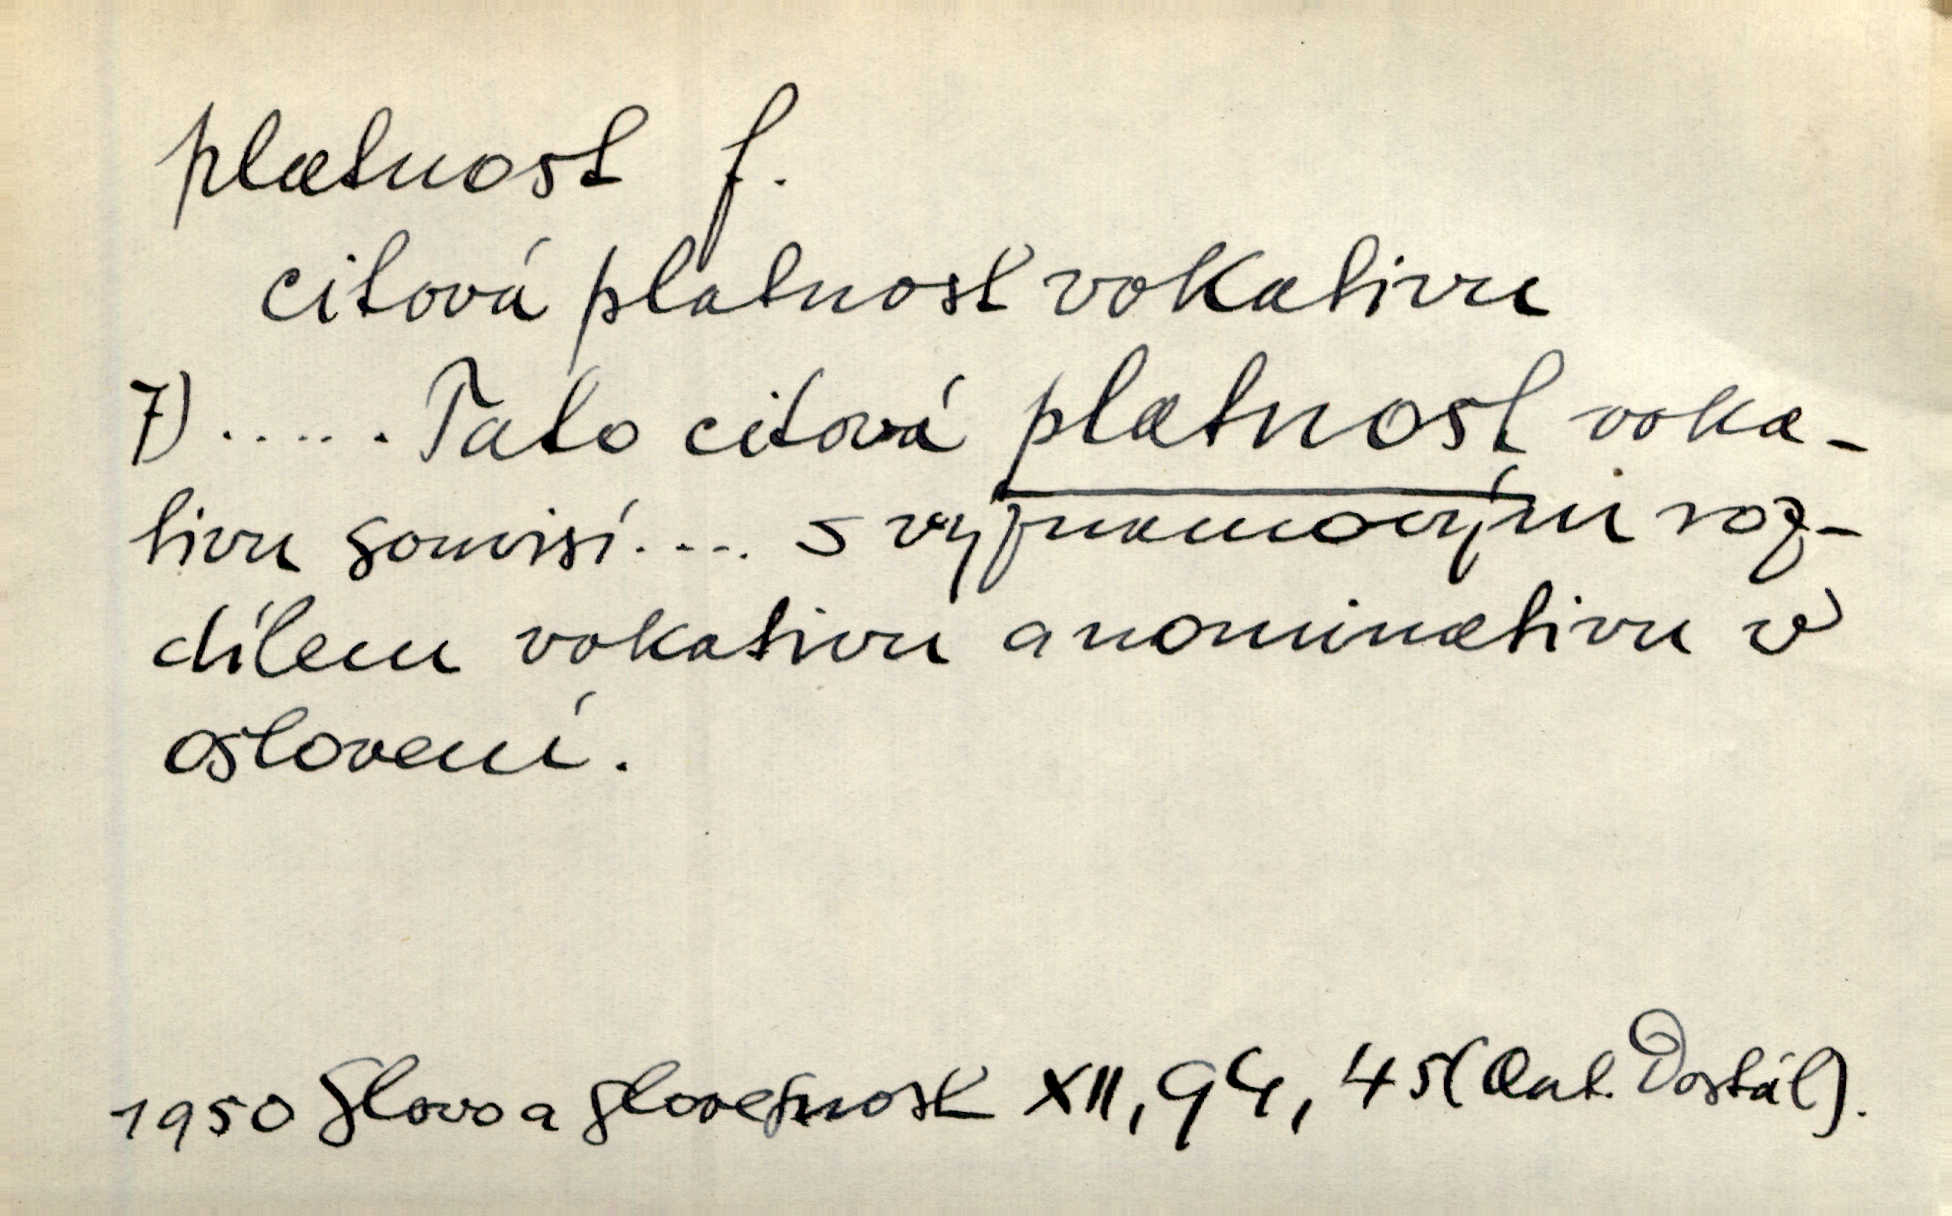 platnost f.
citová platnost vokativu
7) ..... Tato citová platnost voka-
tivu souvisí .... s významovým roz-
dílem vokativu a nominativu v
oslovení.
1950 Slovo a slovesnost XII, 94, 45 (Ant. Dostál).